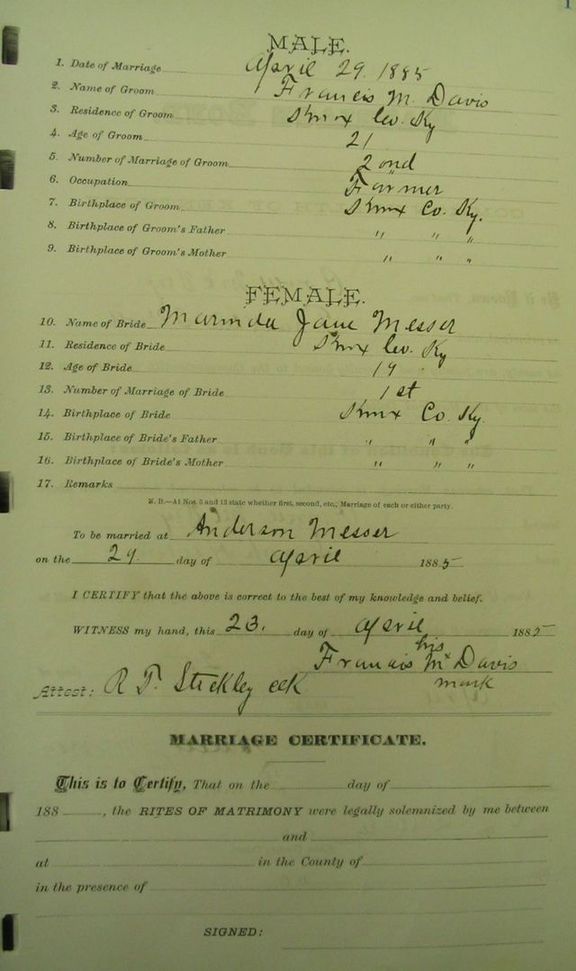 MALE.
1. Date of Marriage April 29. 1885
2. Name of Groom Francis M. Davis
3. Residence of Groom Knox Co. Ky
4. Age of Groom 21
5. Number of Marriage of Groom 2ond
6. Occupation Farmer
7. Birthplace of Groom Knox Co. Ky.
8. Birthplace of Groom's Father " " "
9. Birthplace of Groom's Mother " " "
FEMALE.
10. Name of Bride Marinda Jane Messer
11. Residence of Bride Knox Co. Ky
12. Age of Bride 19
13. Number of Marriage of Bride 1st
14. Birthplace of Bride Knox Co. Ky.
15. Birthplace of Bride's Father " " "
16. Birthplace of Bride's Mother " " "
17. Remarks
N. B.—At Nos. 5 and 13 state whether first, second, etc., Marriage of each or either party.
To be married at Anderson Messer
on the 29 day of April 1885
I CERTIFY that the above is correct to the best of my knowledge and belief.
WITNESS my hand, this 23. day of April 1885
his
Francis M x Davis
mark
Attest: R T. Stickley cck
MARRIAGE CERTIFICATE.
This is to Certify, That on the day of
188 , the RITES OF MATRIMONY were legally solemnized by me between
and
at in the County of
in the presence of
SIGNED: